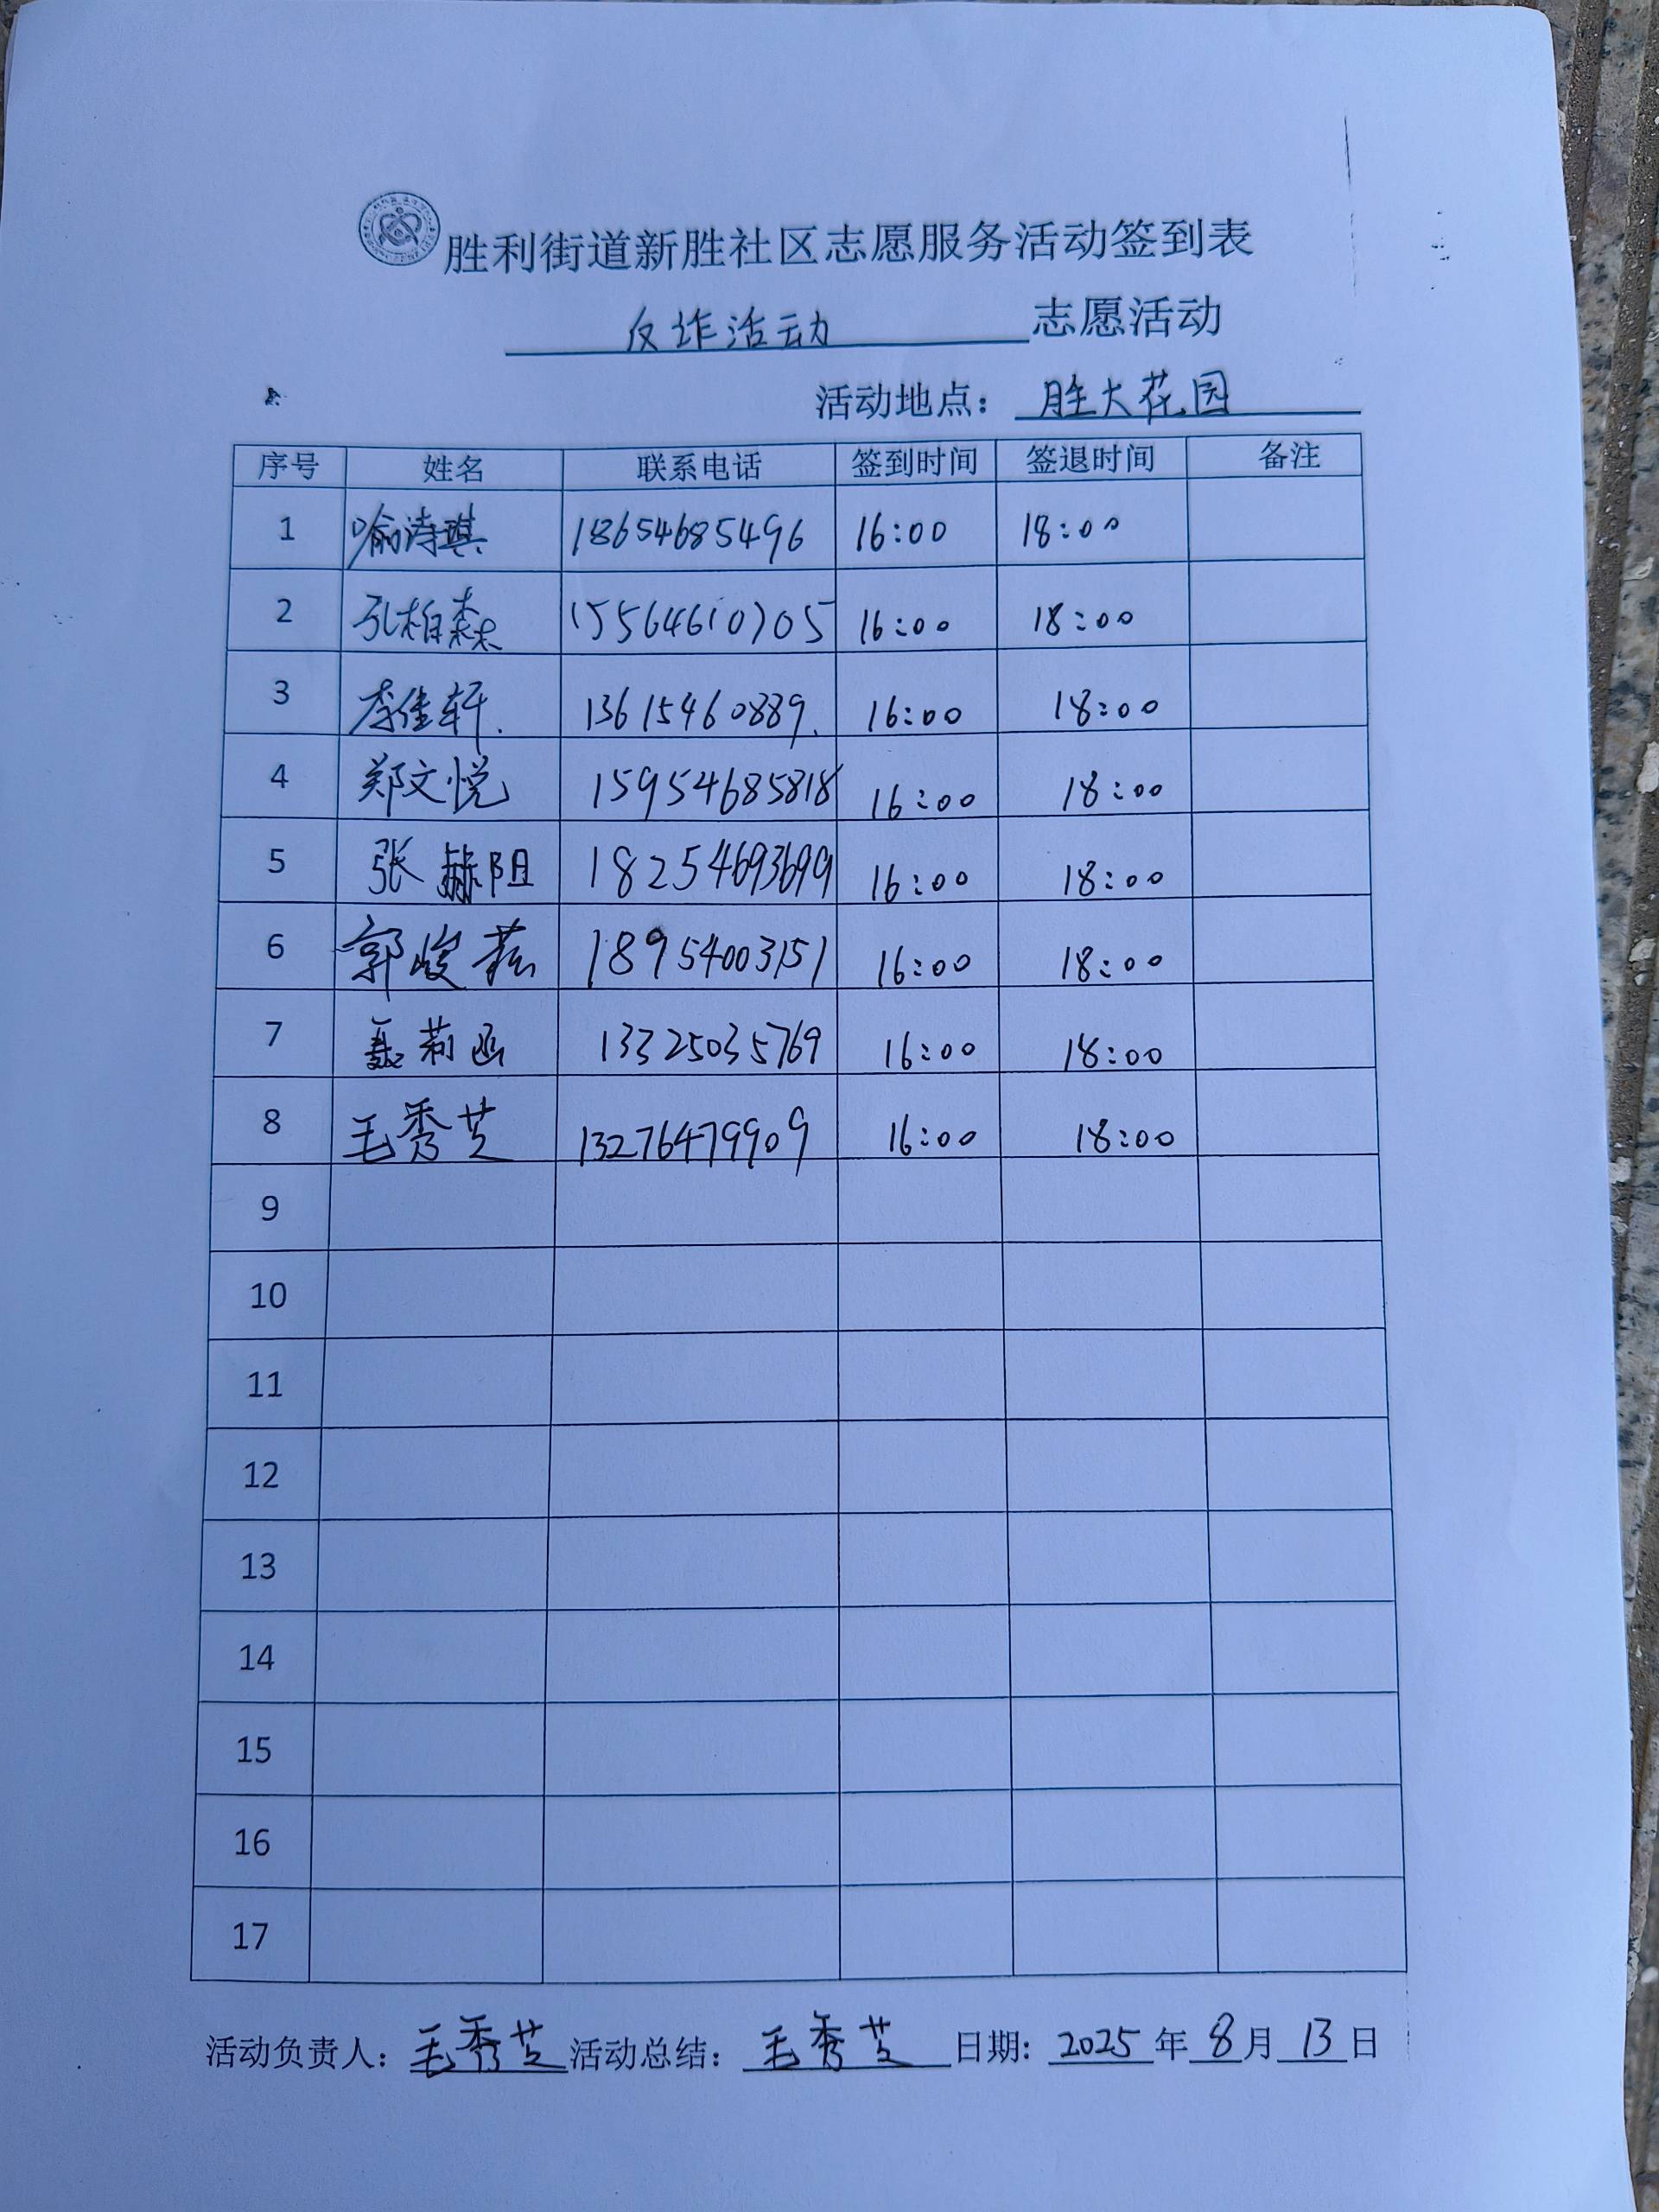 胜利街道新胜社区志愿服务活动签到表
反诈活动 志愿活动
活动地点： 胜大花园
序号 姓名 联系电话 签到时间 签退时间 备注
1 喻诗琪 18654685496 16:00 18:00
2 张柏森 15564610705 16:00 18:00
3 李佳轩. 13615460889. 16:00 18:00
4 郑文悦 15954685818 16:00 18:00
5 张赫阳 18254693699 16:00 18:00
6 郭峻菘 18954003151 16:00 18:00
7 聂莉函 13325035769 16:00 18:00
8 毛秀芝 13276479909 16:00 18:00
9
10
11
12
13
14
15
16
17
活动负责人: 毛秀芝 活动总结: 毛秀芝 日期: 2025 年 8 月 13 日